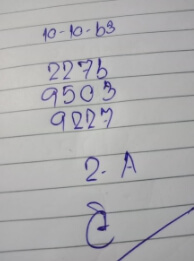 10-10-63
2276
9503
9227
2. A